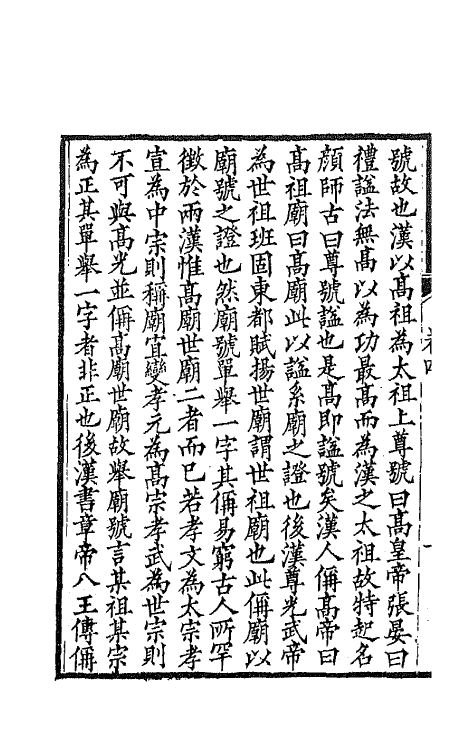 號故也漢以髙祖為太祖上尊號曰髙皇帝張晏曰
禮諡法無髙以為功最髙而為漢之太祖故特起名
顔師古曰尊號諡也是髙即諡號矣漢人偁髙帝曰
髙祖廟曰髙廟此以諡系廟之證也後漢尊光武帝
為世祖班固東都賦揚世廟謂世祖廟也此偁廟以
廟號之證也然廟號單舉一字其偁易窮古人所罕
徵於兩漢惟髙廟世廟二者而已若孝文為太宗孝
宣為中宗則稱廟宜變孝元為髙宗孝武為世宗則
不可與髙光並偁髙廟世廟故舉廟號言某祖某宗
為正其單舉一字者非正也後漢書章帝八王傳偁